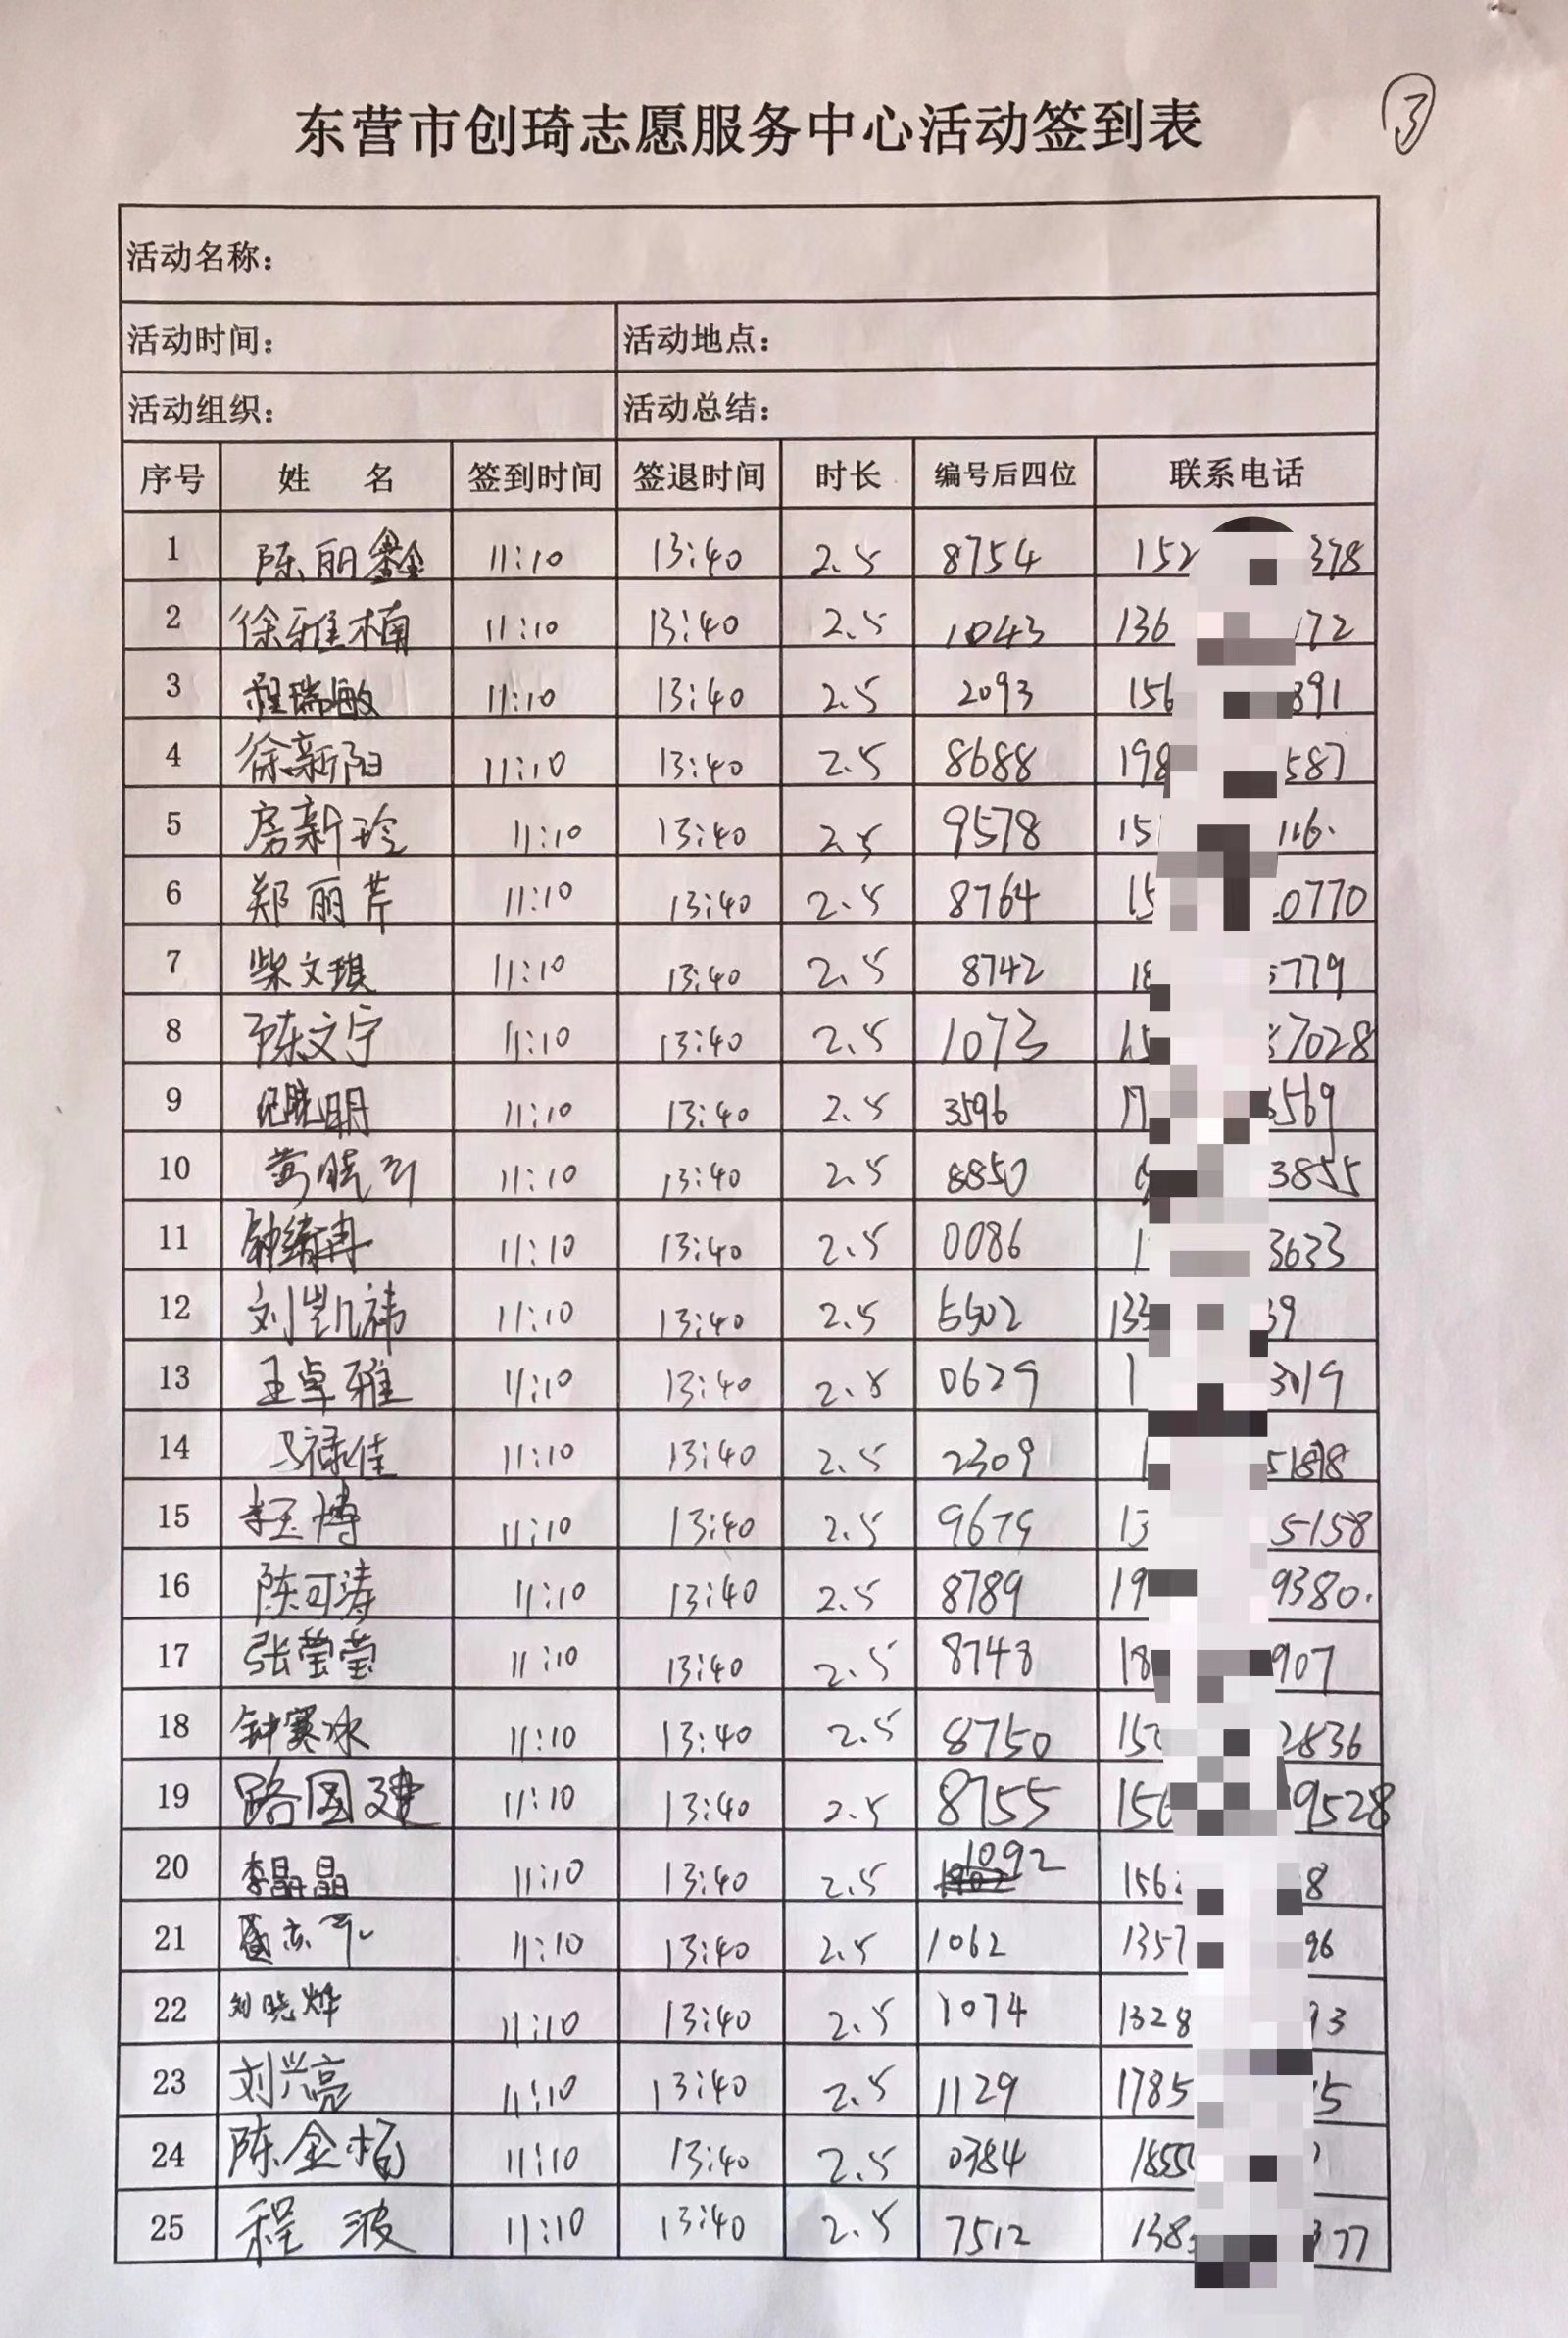 ③
东营市创琦志愿服务中心活动签到表
活动名称：
活动时间： 活动地点：
活动组织： 活动总结：
序号 姓 名 签到时间 签退时间 时长 编号后四位 联系电话
1 陈丽鑫 11:10 13:40 2.5 8754 152 378
2 徐雅楠 11:10 13:40 2.5 1043 136 172
3 程瑞敏 11:10 13:40 2.5 2093 156 391
4 徐新阳 11:10 13:40 2.5 8688 198 587
5 房新玲 11:10 13:40 2.5 9578 15 116.
6 郑丽芹 11:10 13:40 2.5 8764 15 0770
7 柴文琪 11:10 13:40 2.5 8742 18 779
8 陈文宁 11:10 13:40 2.5 1073 15 7028
9 11:10 13:40 2.5 3596 17 569
10 11:10 13:40 2.5 8850 3855
11 钟绮冉 11:10 13:40 2.5 0086 1 3633
12 刘凯祎 11:10 13:40 2.5 133 39
13 王卓雅 11:10 13:40 2.5 0629 1 3019
14 马禄佳 11:10 13:40 2.5 2309 1
15 李玉博 11:10 13:40 2.5 9679 13 5158
16 陈可涛 11:10 13:40 2.5 8789 19 9380.
17 张莹莹 11:10 13:40 2.5 8748 18 907
18 钟赛冰 11:10 13:40 2.5 8750 150 2836
19 路国建 11:10 13:40 2.5 8755 156 9528
20 李晶晶 11:10 13:40 2.5 1092 156 8
21 11:10 13:40 2.5 1062 1357 96
22 刘晓烨 11:10 13:40 2.5 1074 1328 93
23 刘兴亮 11:10 13:40 2.5 1129 1785 15
24 陈金柏 11:10 13:40 2.5 0384 1855
25 程波 11:10 13:40 2.5 7512 138 377